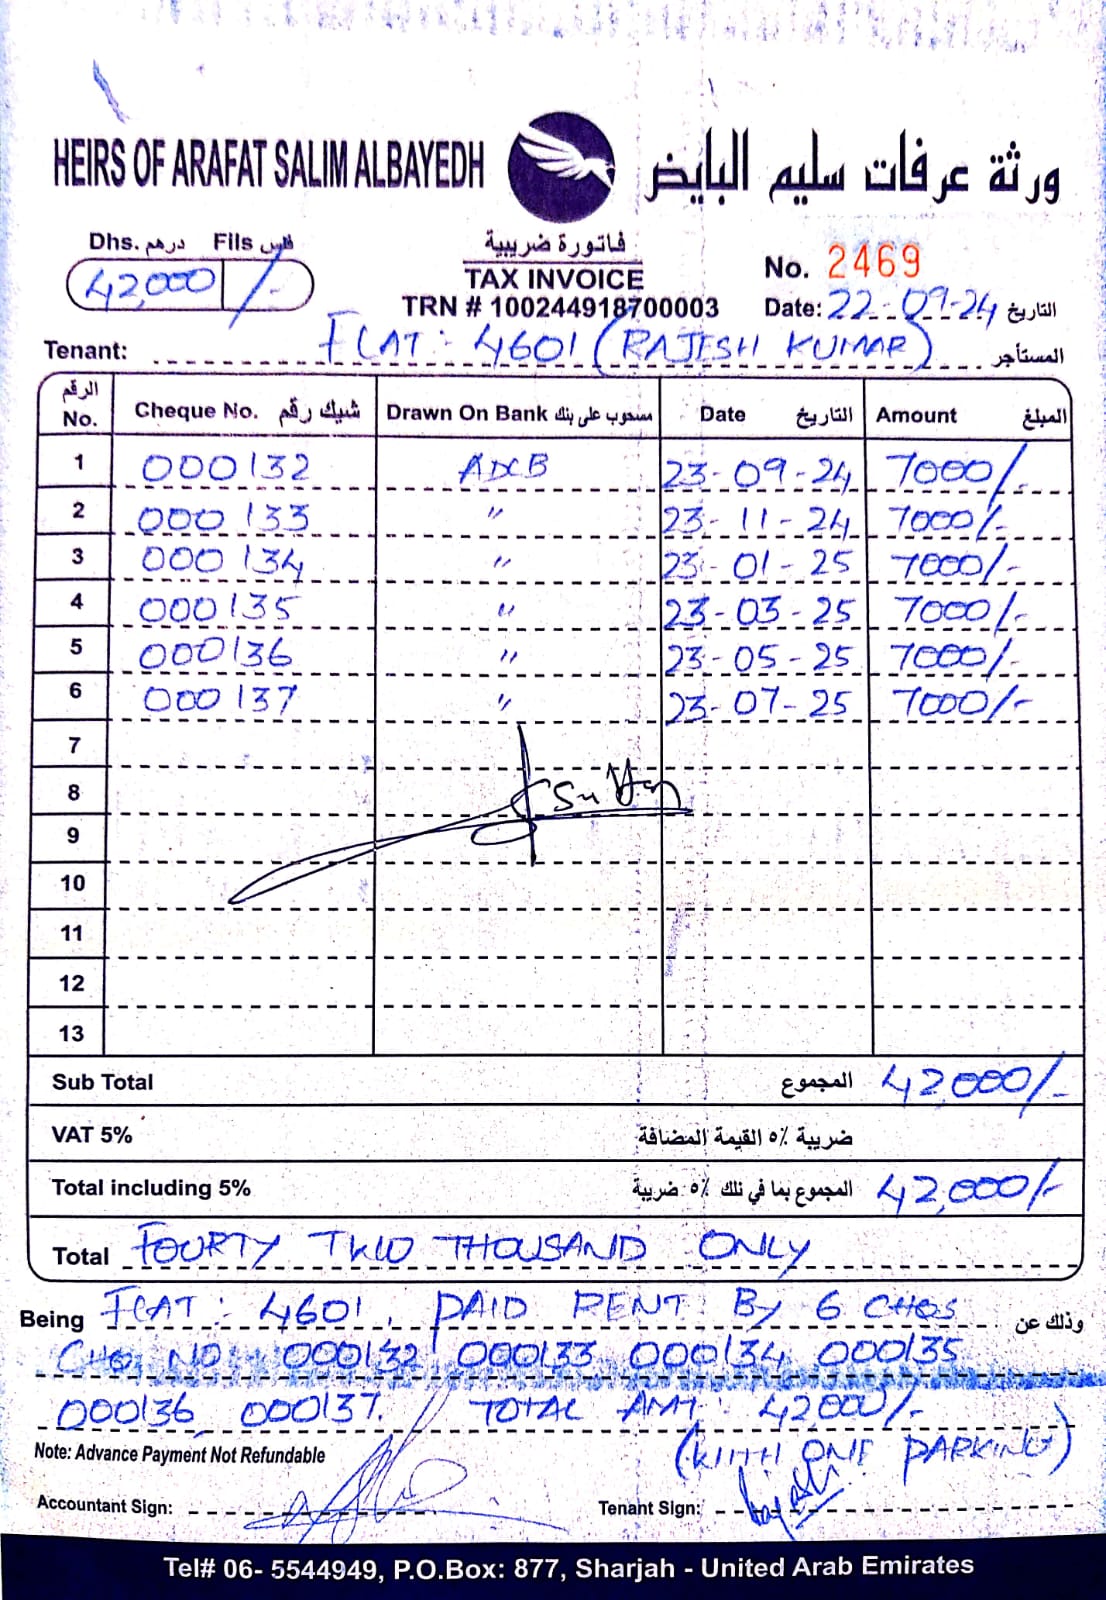 HEIRS OF ARAFAT SALIM ALBAYEDH ورثة عرفات سليم البايض
Dhs. درهم Fils فلس
42,000 /-
فاتورة ضريبية
TAX INVOICE
TRN # 100244918700003
No. 2469
Date: 22-09-24 التاريخ
Tenant: FLAT: 4601 (RAJESH KUMAR) المستأجر
الرقم No. Cheque No. شيك رقم Drawn On Bank مسحوب على بنك Date التاريخ Amount المبلغ
1 000132 ADCB 23-09-24 7000/-
2 000133 〃 23-11-24 7000/-
3 000134 〃 23-01-25 7000/-
4 000135 〃 23-03-25 7000/-
5 000136 〃 23-05-25 7000/-
6 000137 〃 23-07-25 7000/-
7
8
9
10
11
12
13
Sub Total المجموع 42,000/-
VAT 5% ضريبة ٥٪ القيمة المضافة
Total including 5% المجموع بما في ذلك ٥٪ ضريبة 42,000/-
Total FOURTY TWO THOUSAND ONLY
Being FLAT: 4601, PAID RENT: By 6 CHQS وذلك عن
CHQ. NO: 000132 000133 000134 000135
000136 000137. TOTAL AMT: 42000/-
(WITH ONE PARKING)
Note: Advance Payment Not Refundable
Accountant Sign: Tenant Sign:
Tel# 06- 5544949, P.O.Box: 877, Sharjah - United Arab Emirates